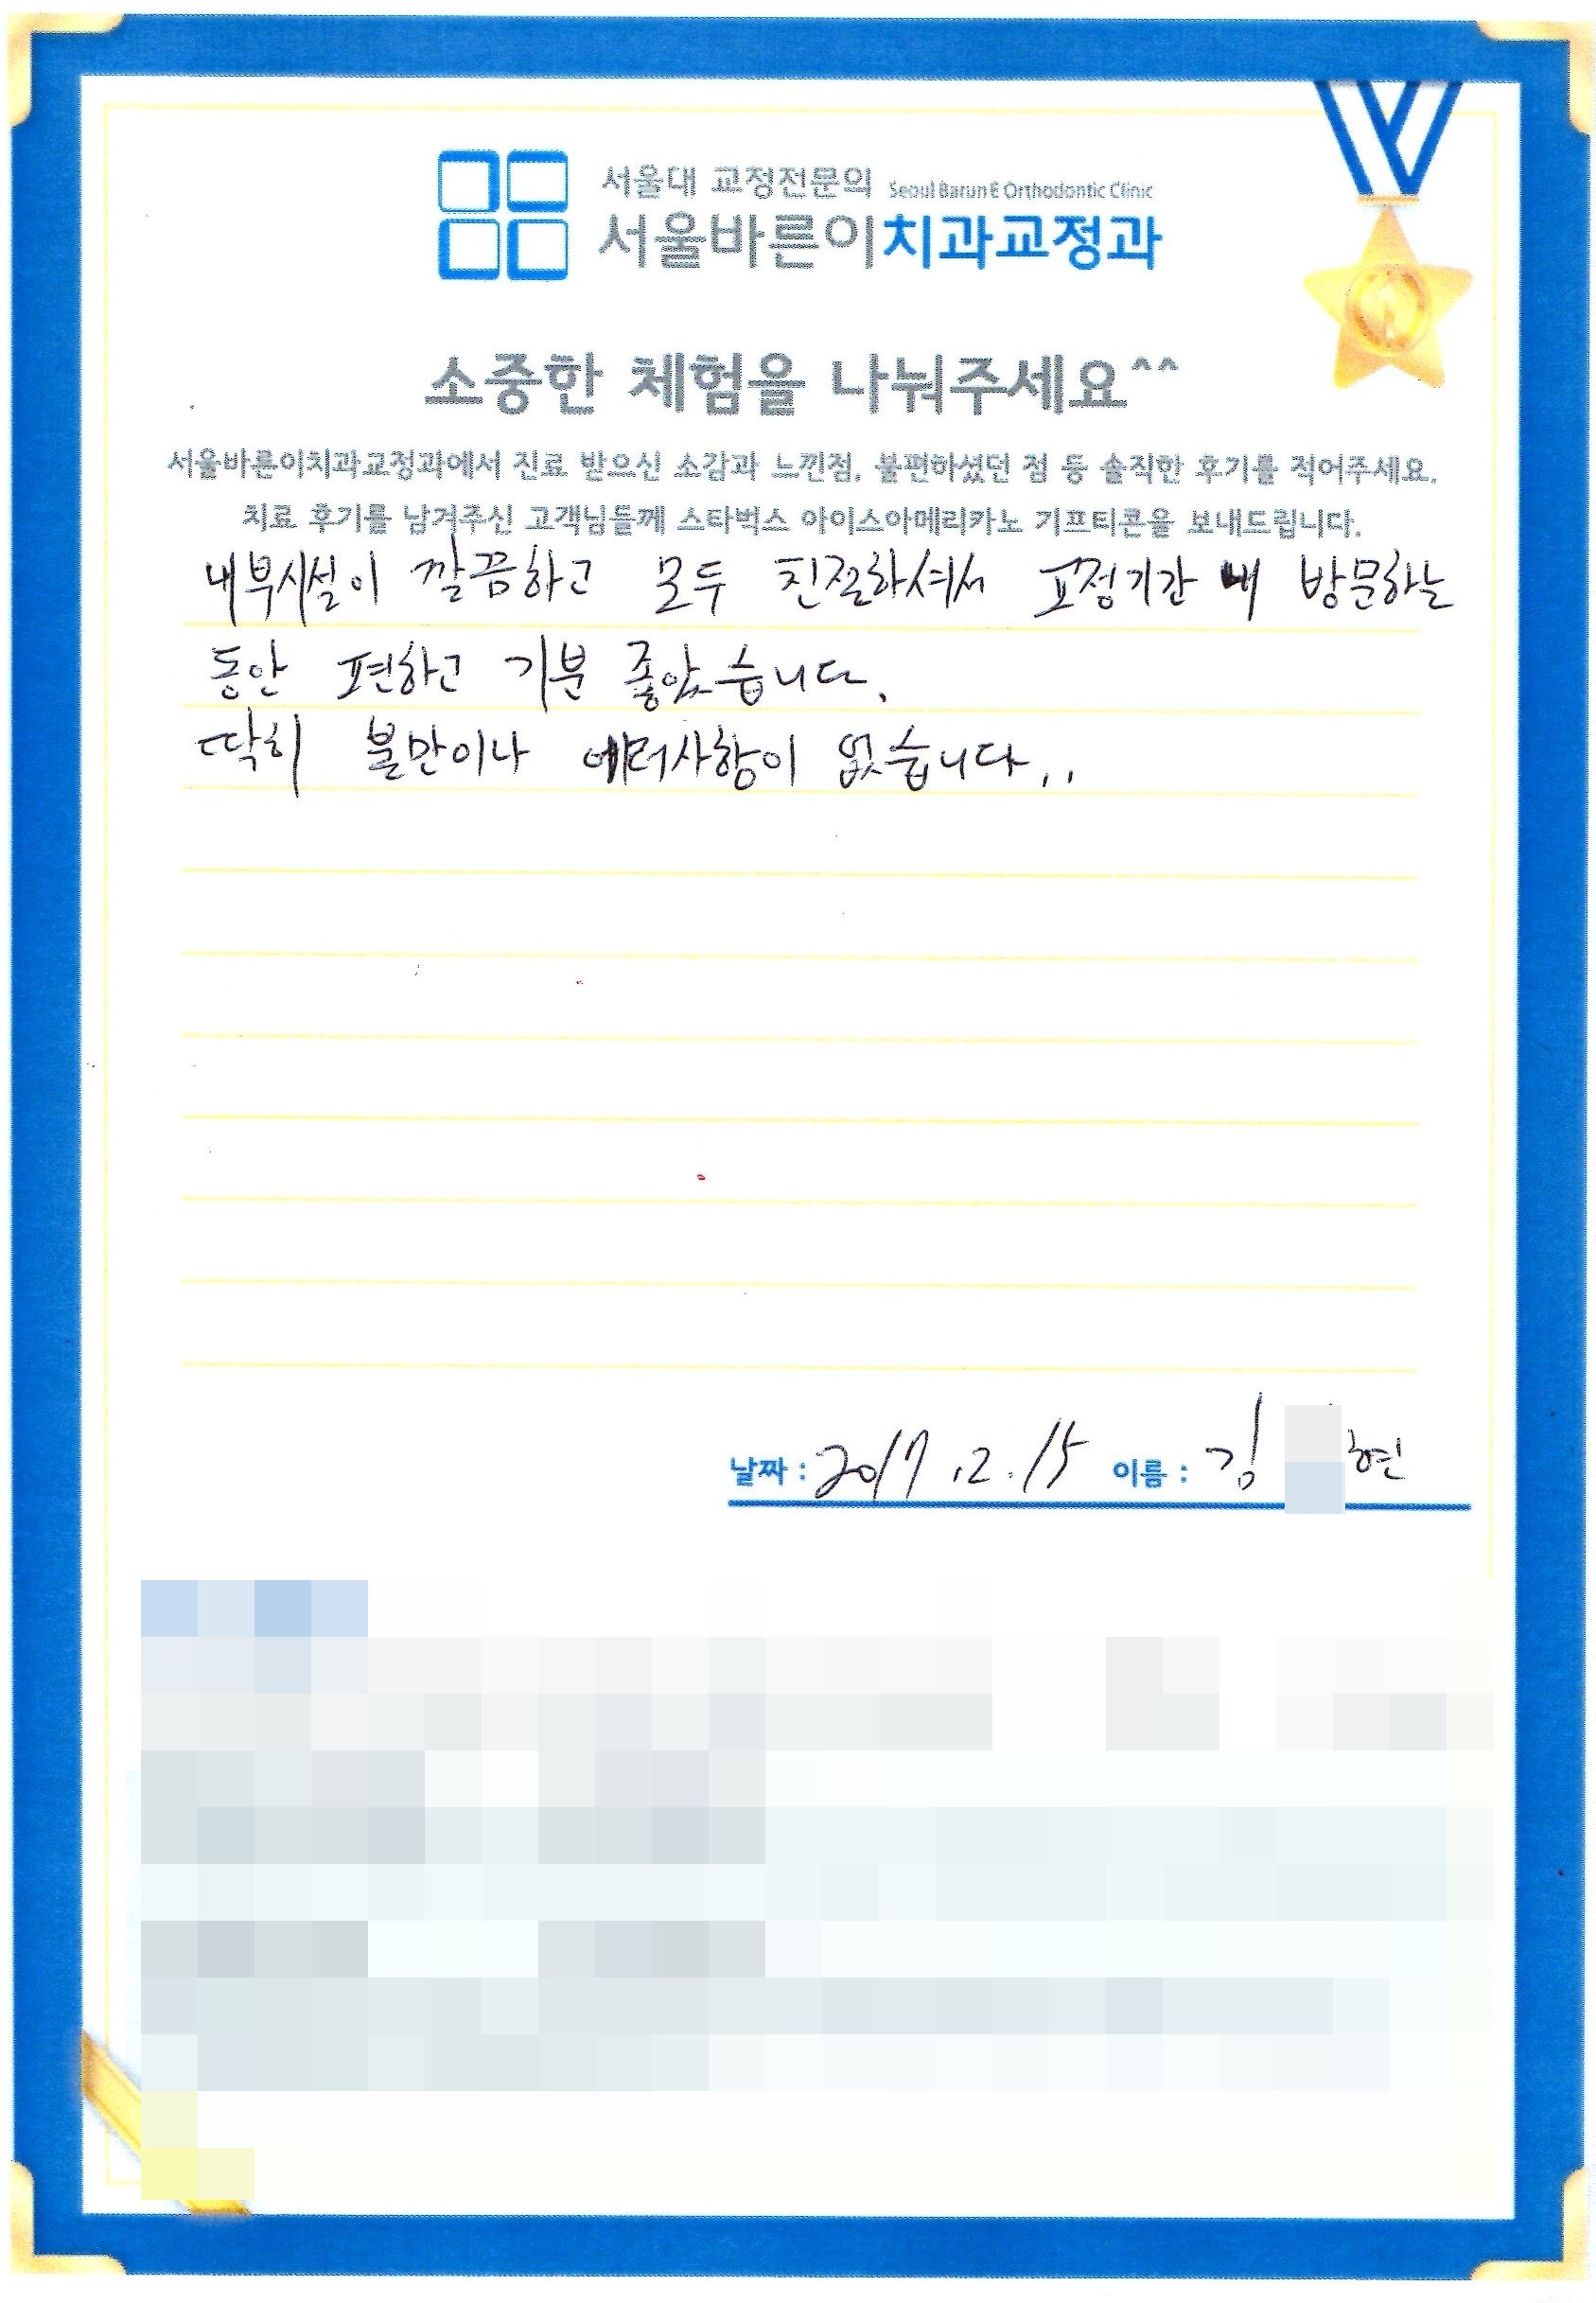 서울대 교정전문의 Seoul BarunE Orthodontic Clinic
서울바른이치과교정과
소중한 체험을 나눠주세요^^
서울바른이치과교정과에서 진료 받으신 소감과 느낀점, 불편하셨던 점 등 솔직한 후기를 적어주세요.
치료 후기를 남겨주신 고객님들께 스타벅스 아이스아메리카노 기프티콘을 보내드립니다.
내부시설이 깔끔하고 모두 친절하셔서 교정기간 내 방문하는
동안 편하고 기분 좋았습니다.
딱히 불만이나 에러사항이 없습니다..
날짜 : 2017.12.15 이름 : 김 현